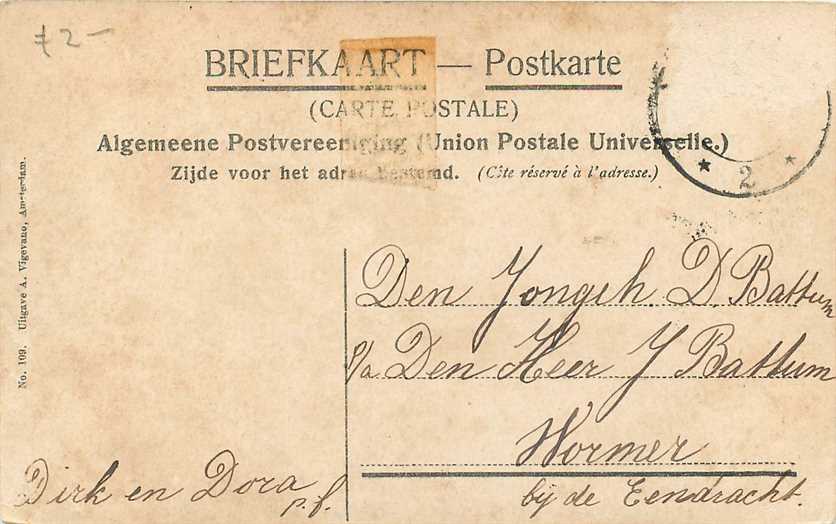 72-
BRIEFKAART — Postkarte
(CARTE POSTALE)
Algemeene Postvereeniging (Union Postale Universelle.)
Zijde voor het adres bestemd. (Côte réservé à l'adresse.)
* 2 *
No. 109. Uitgave A. Vigevano, Amsterdam.
Den Jongeh. D. Battum
p/a Den Heer J Battum
Wormer
bij de Eendracht.
Dirk en Dora
p.f.